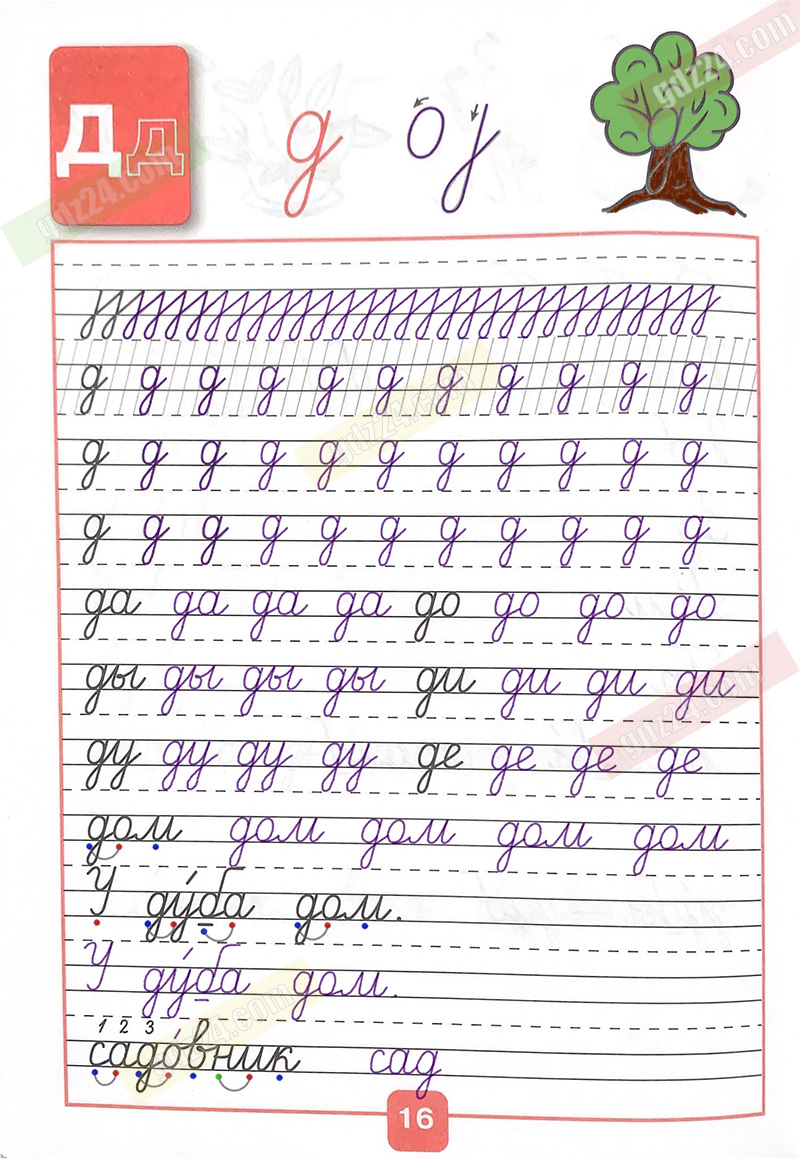 Дд д
д д д д д д д д д д д
д д д д д д д д д д д
д д д д д д д д д д д
да да да да до до до до
ды ды ды ды ди ди ди ди
ду ду ду ду де де де де
дом дом дом дом дом
У ду́ба дом.
У ду́ба дом.
1 2 3
садо́вник сад
16
gdz24.com
gdz24.com
gdz24.com
gdz24.com
gdz24.com